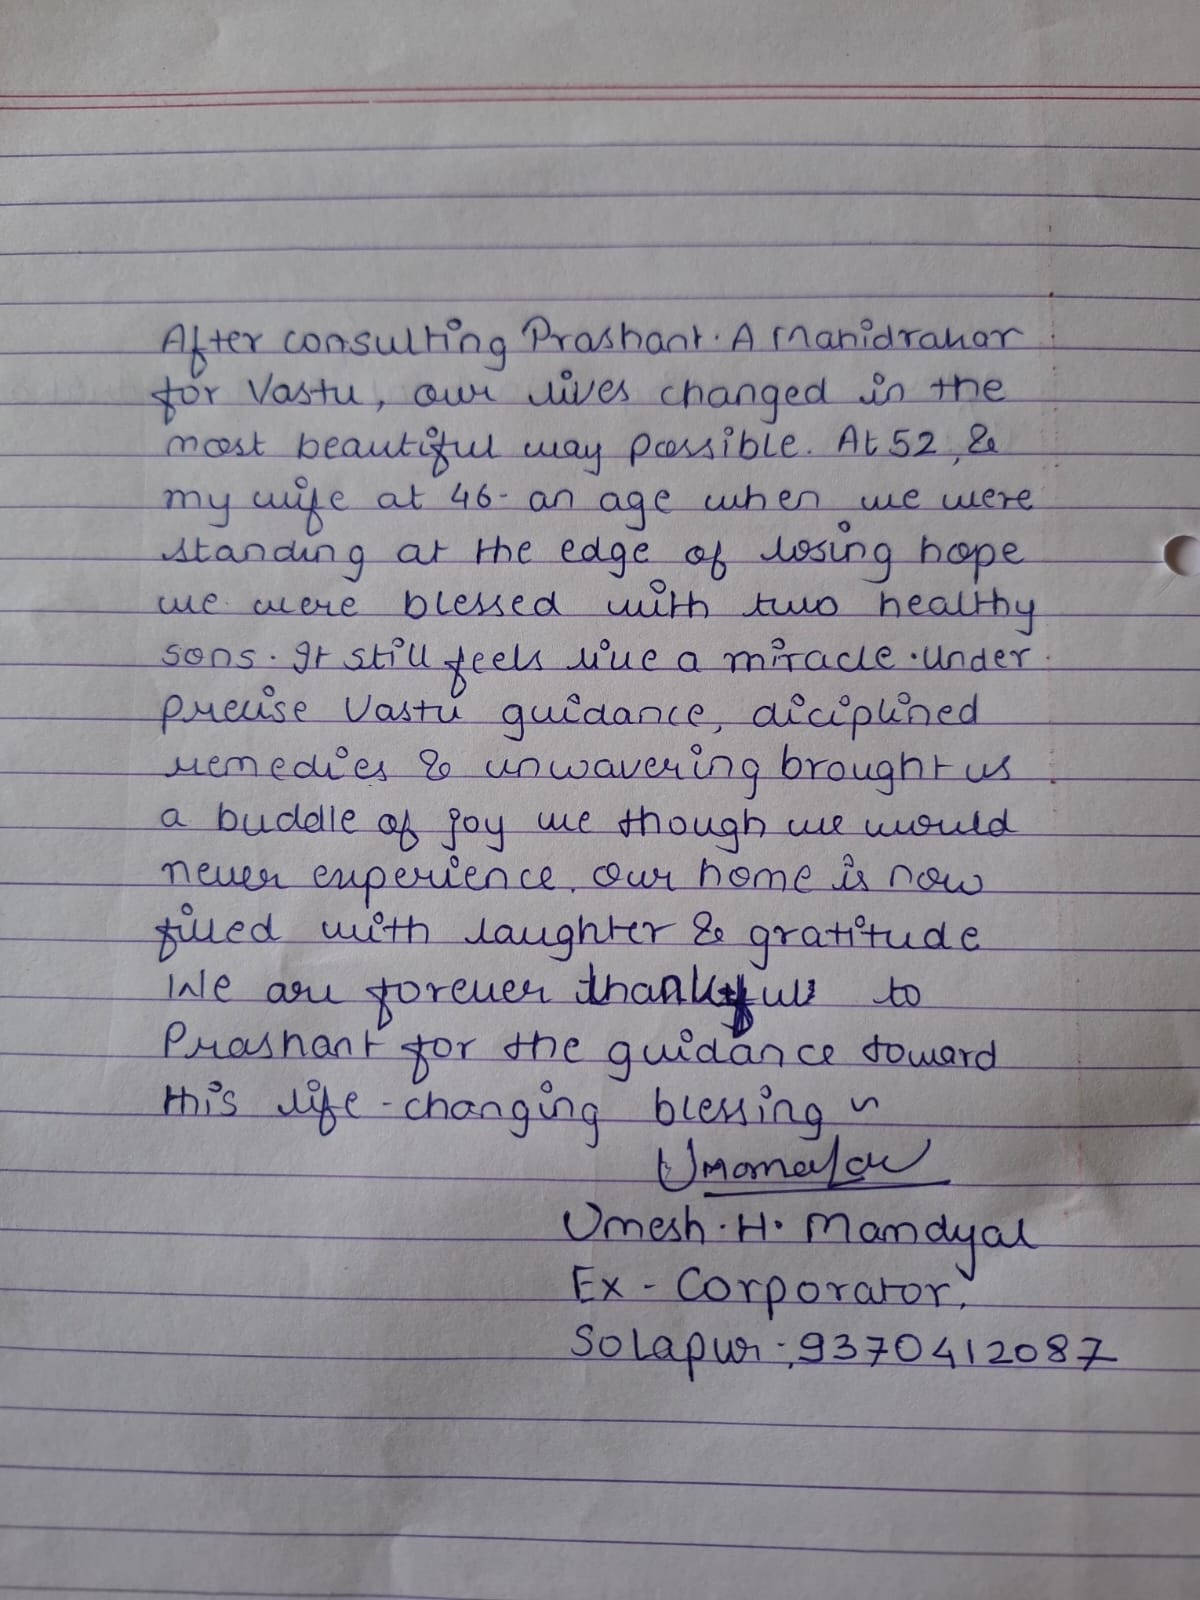 After consulting Prashant. A Mahidrakar
for Vastu, our lives changed in the
most beautiful way possible. At 52, &
my wife at 46- an age when we were
standing at the edge of losing hope
we were blessed with two healthy
sons. It still feels like a miracle. Under
precise Vastu guidance, diciplined
remedies & unwavering brought us
a buddle of joy we though we would
never experience. Our home is now
filled with laughter & gratitude
We are forever thankful to
Prashant for the guidance toward
this life-changing blessing
Umesh. H. Mandyal
Ex - Corporator,
Solapur:, 9370412087